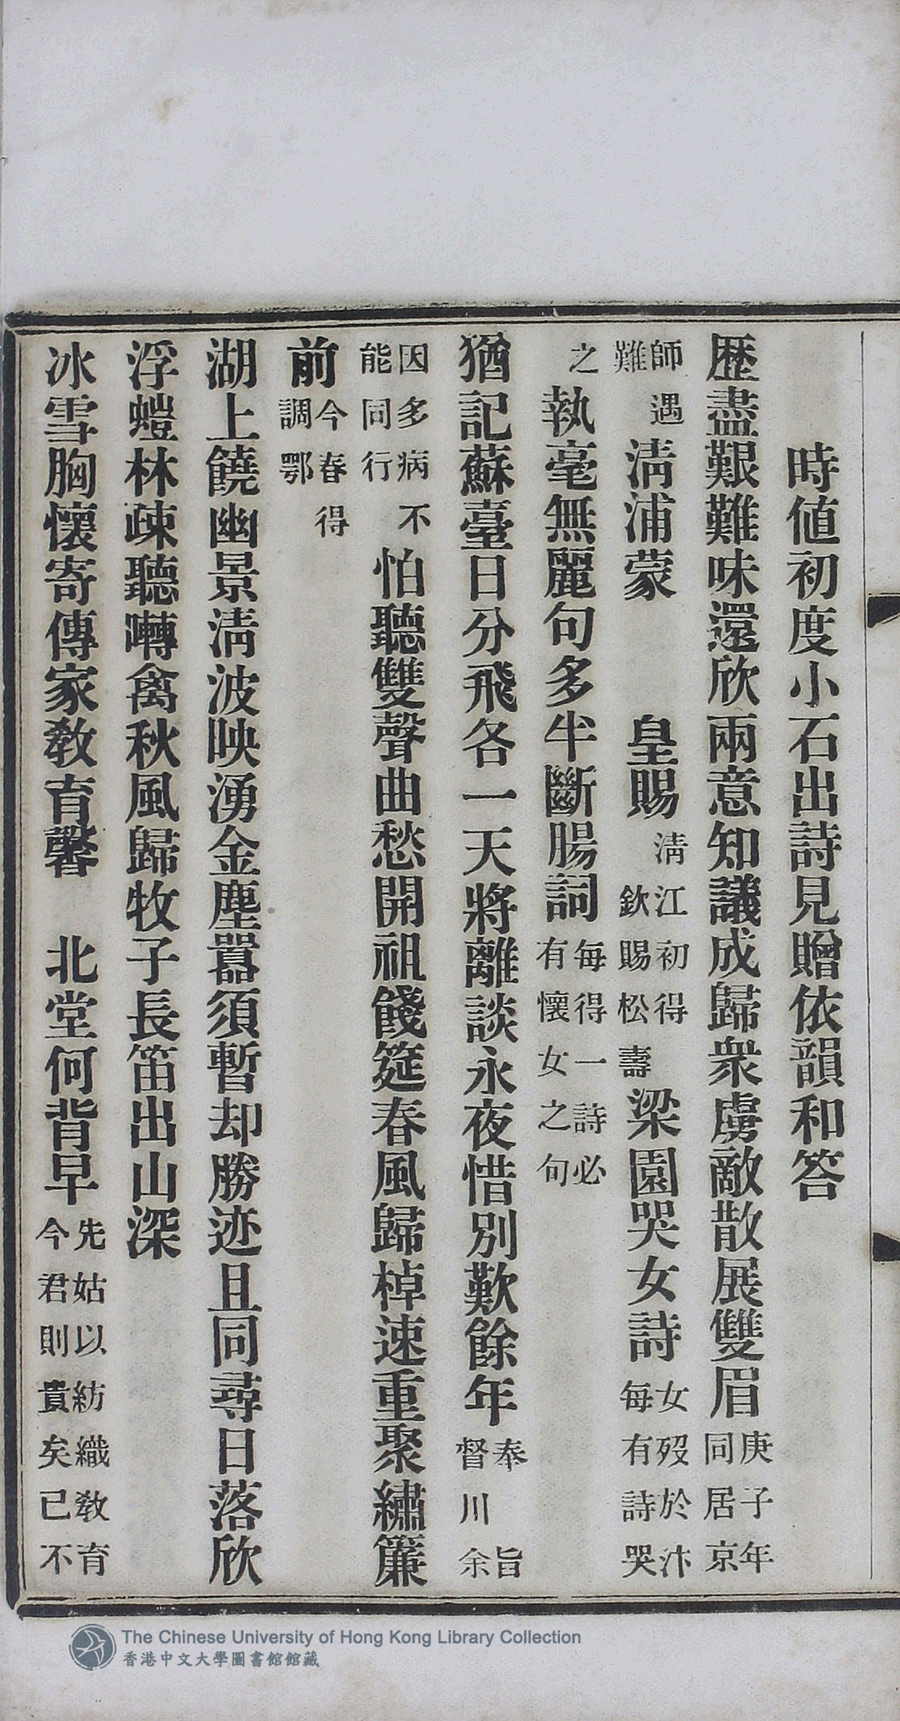 時値初度小石出詩見贈依韻和答
歷盡艱難味還欣兩意知議成歸衆虜敵散展雙眉庚子年同居京
師遇難淸浦蒙 皇賜淸江初得欽賜松壽梁園哭女詩女歿於汴每有詩哭
之執毫無麗句多半斷腸詞每得一詩必有懷女之句
猶記蘇臺日分飛各一天將離談永夜惜別歎餘年奉 旨督川余
因多病不能同行怕聽雙聲曲愁開祖餞筵春風歸棹速重聚繡簾
前今春得調鄂
湖上饒幽景淸波映湧金塵囂須暫却勝迹且同尋日落欣
浮螘林疎聽囀禽秋風歸牧子長笛出山深
冰雪胸懷寄傳家教育馨 北堂何背早先姑以紡織教育今君則貴矣已不
The Chinese University of Hong Kong Library Collection
香港中文大學圖書館館藏